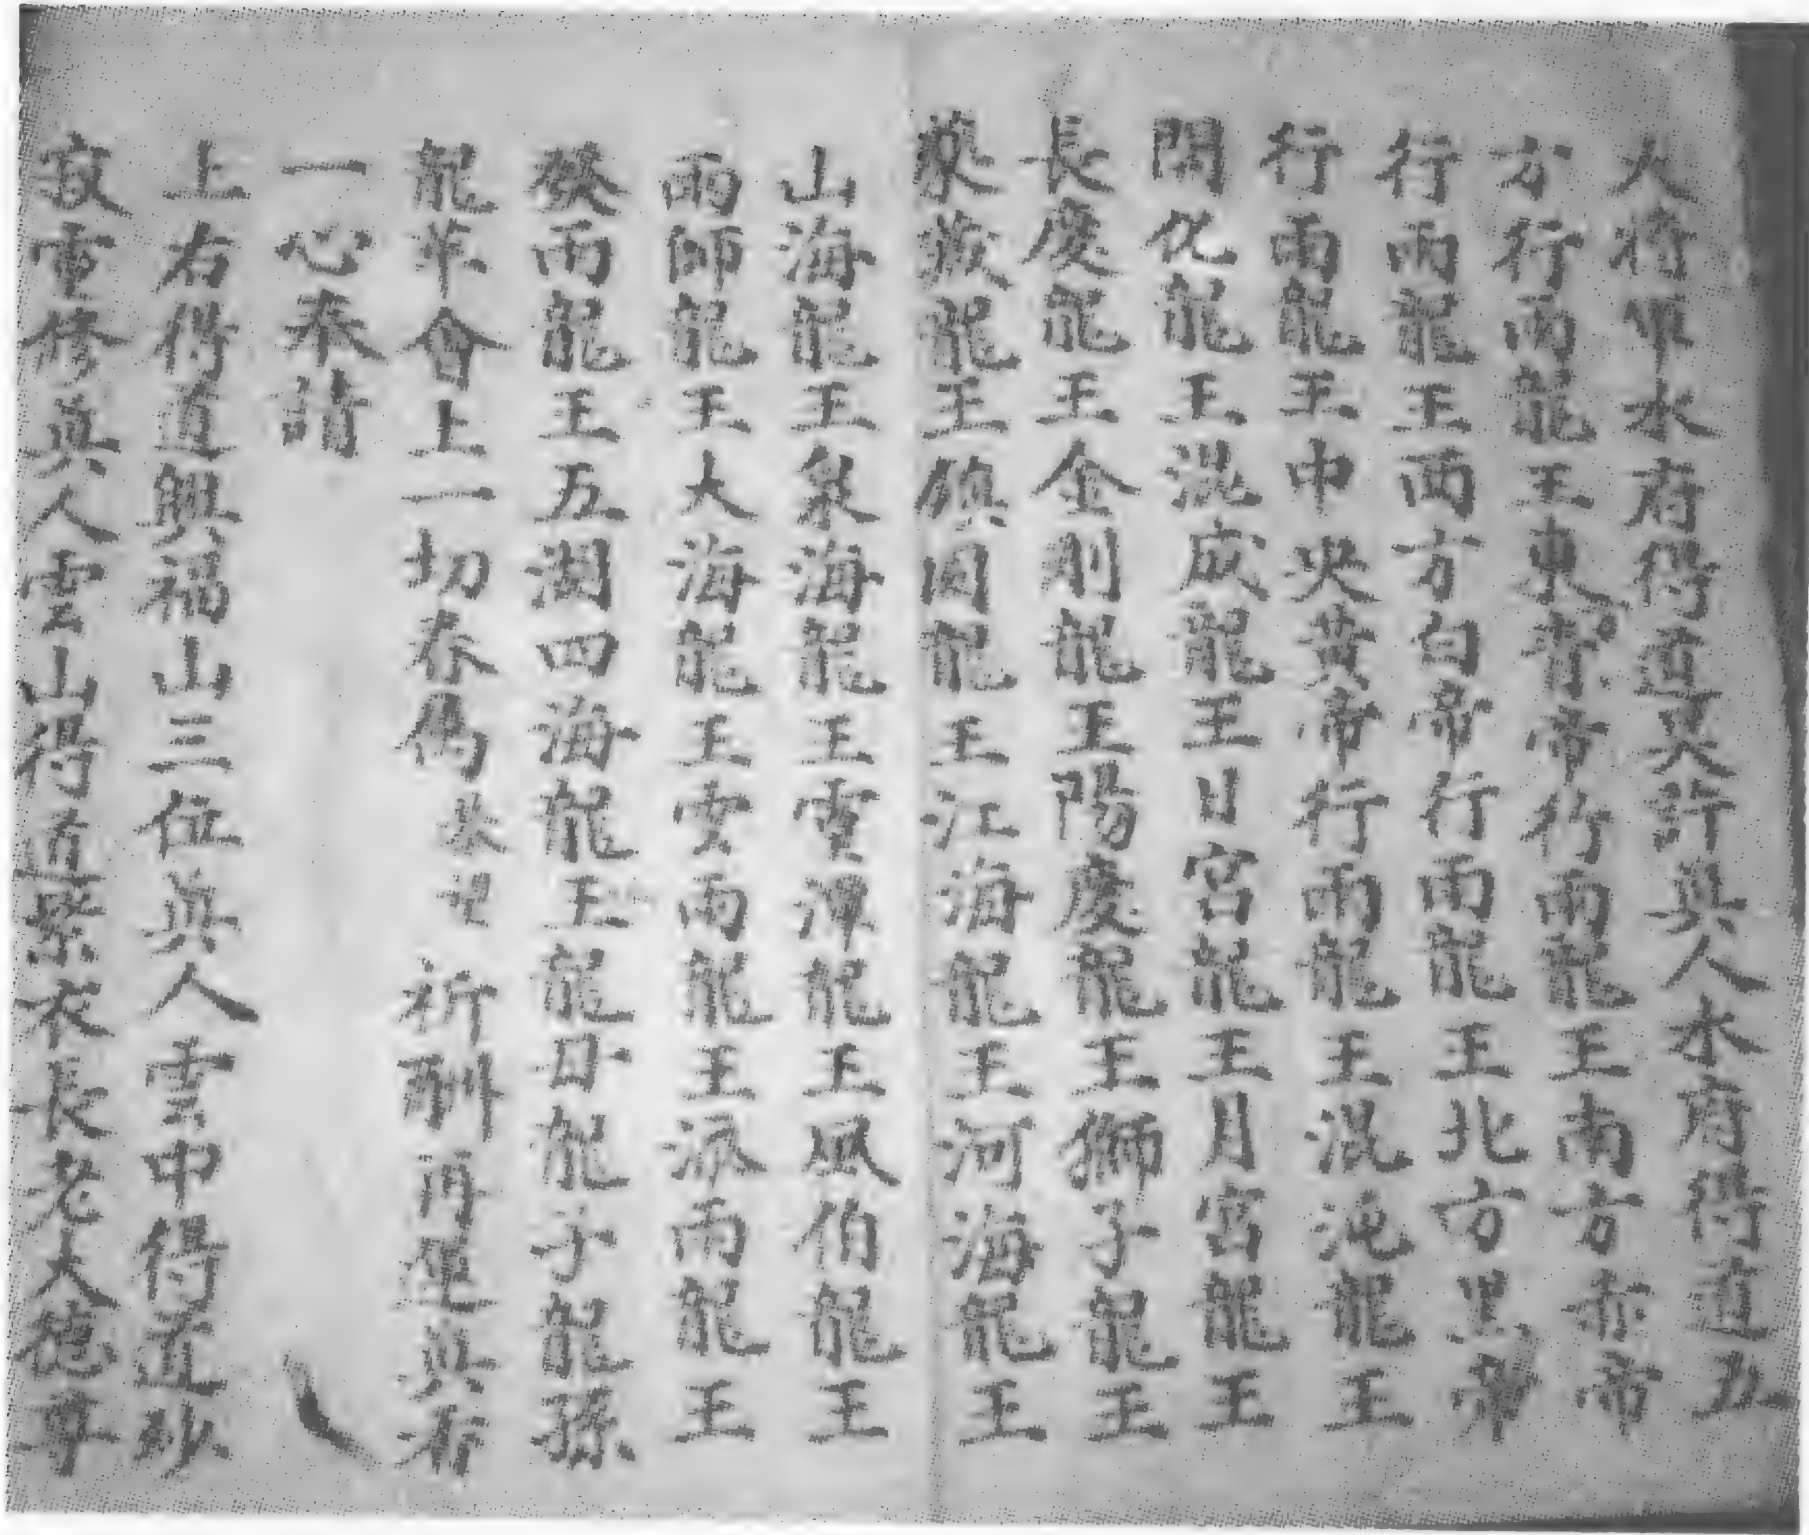 人将軍水府得道天許真人水府得道五
方行雨龍王東青帝行雨龍王南方赤帝
行雨龍王西方白帝行雨龍王北方黑帝
行雨龍王中央黄帝行雨龍王混沌龍王
開化龍王混成龍王日宮龍王月宮龍王
長慶龍王金剛龍王陽慶龍王獅子龍王
龍王鎮国龍王江海龍王河海龍王
山海龍王泉海龍王龍王風伯龍王
雨師龍王大海龍王雲雨龍王派雨龍王
發雨龍王五湖四海龍王龍母龍子龍孫
龍羊會上一切春属 祈酬真君
一心奉請
上右得道興福山三位真人雲中得道妙
寂重修真人雲山得道紫衣長老大德尊